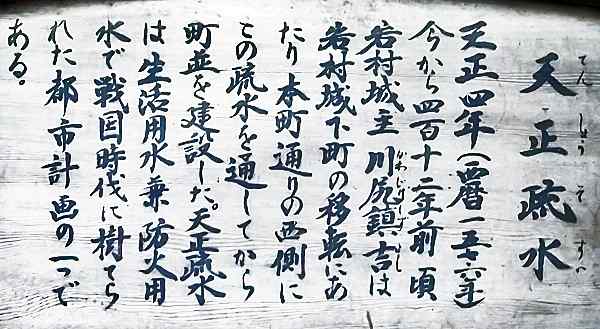 てんしょうそすい
天正疏水
天正四年(西暦一五七六年)
今から四百十二年前頃
岩村城主 川尻鎮吉は
岩村城下町の移転にあ
たり 本町通りの西側に
この疏水を通してから
町並を建設した。天正疏水
は生活用水兼 防火用
水で戦国時代に樹てら
れた都市計画の一つで
ある。